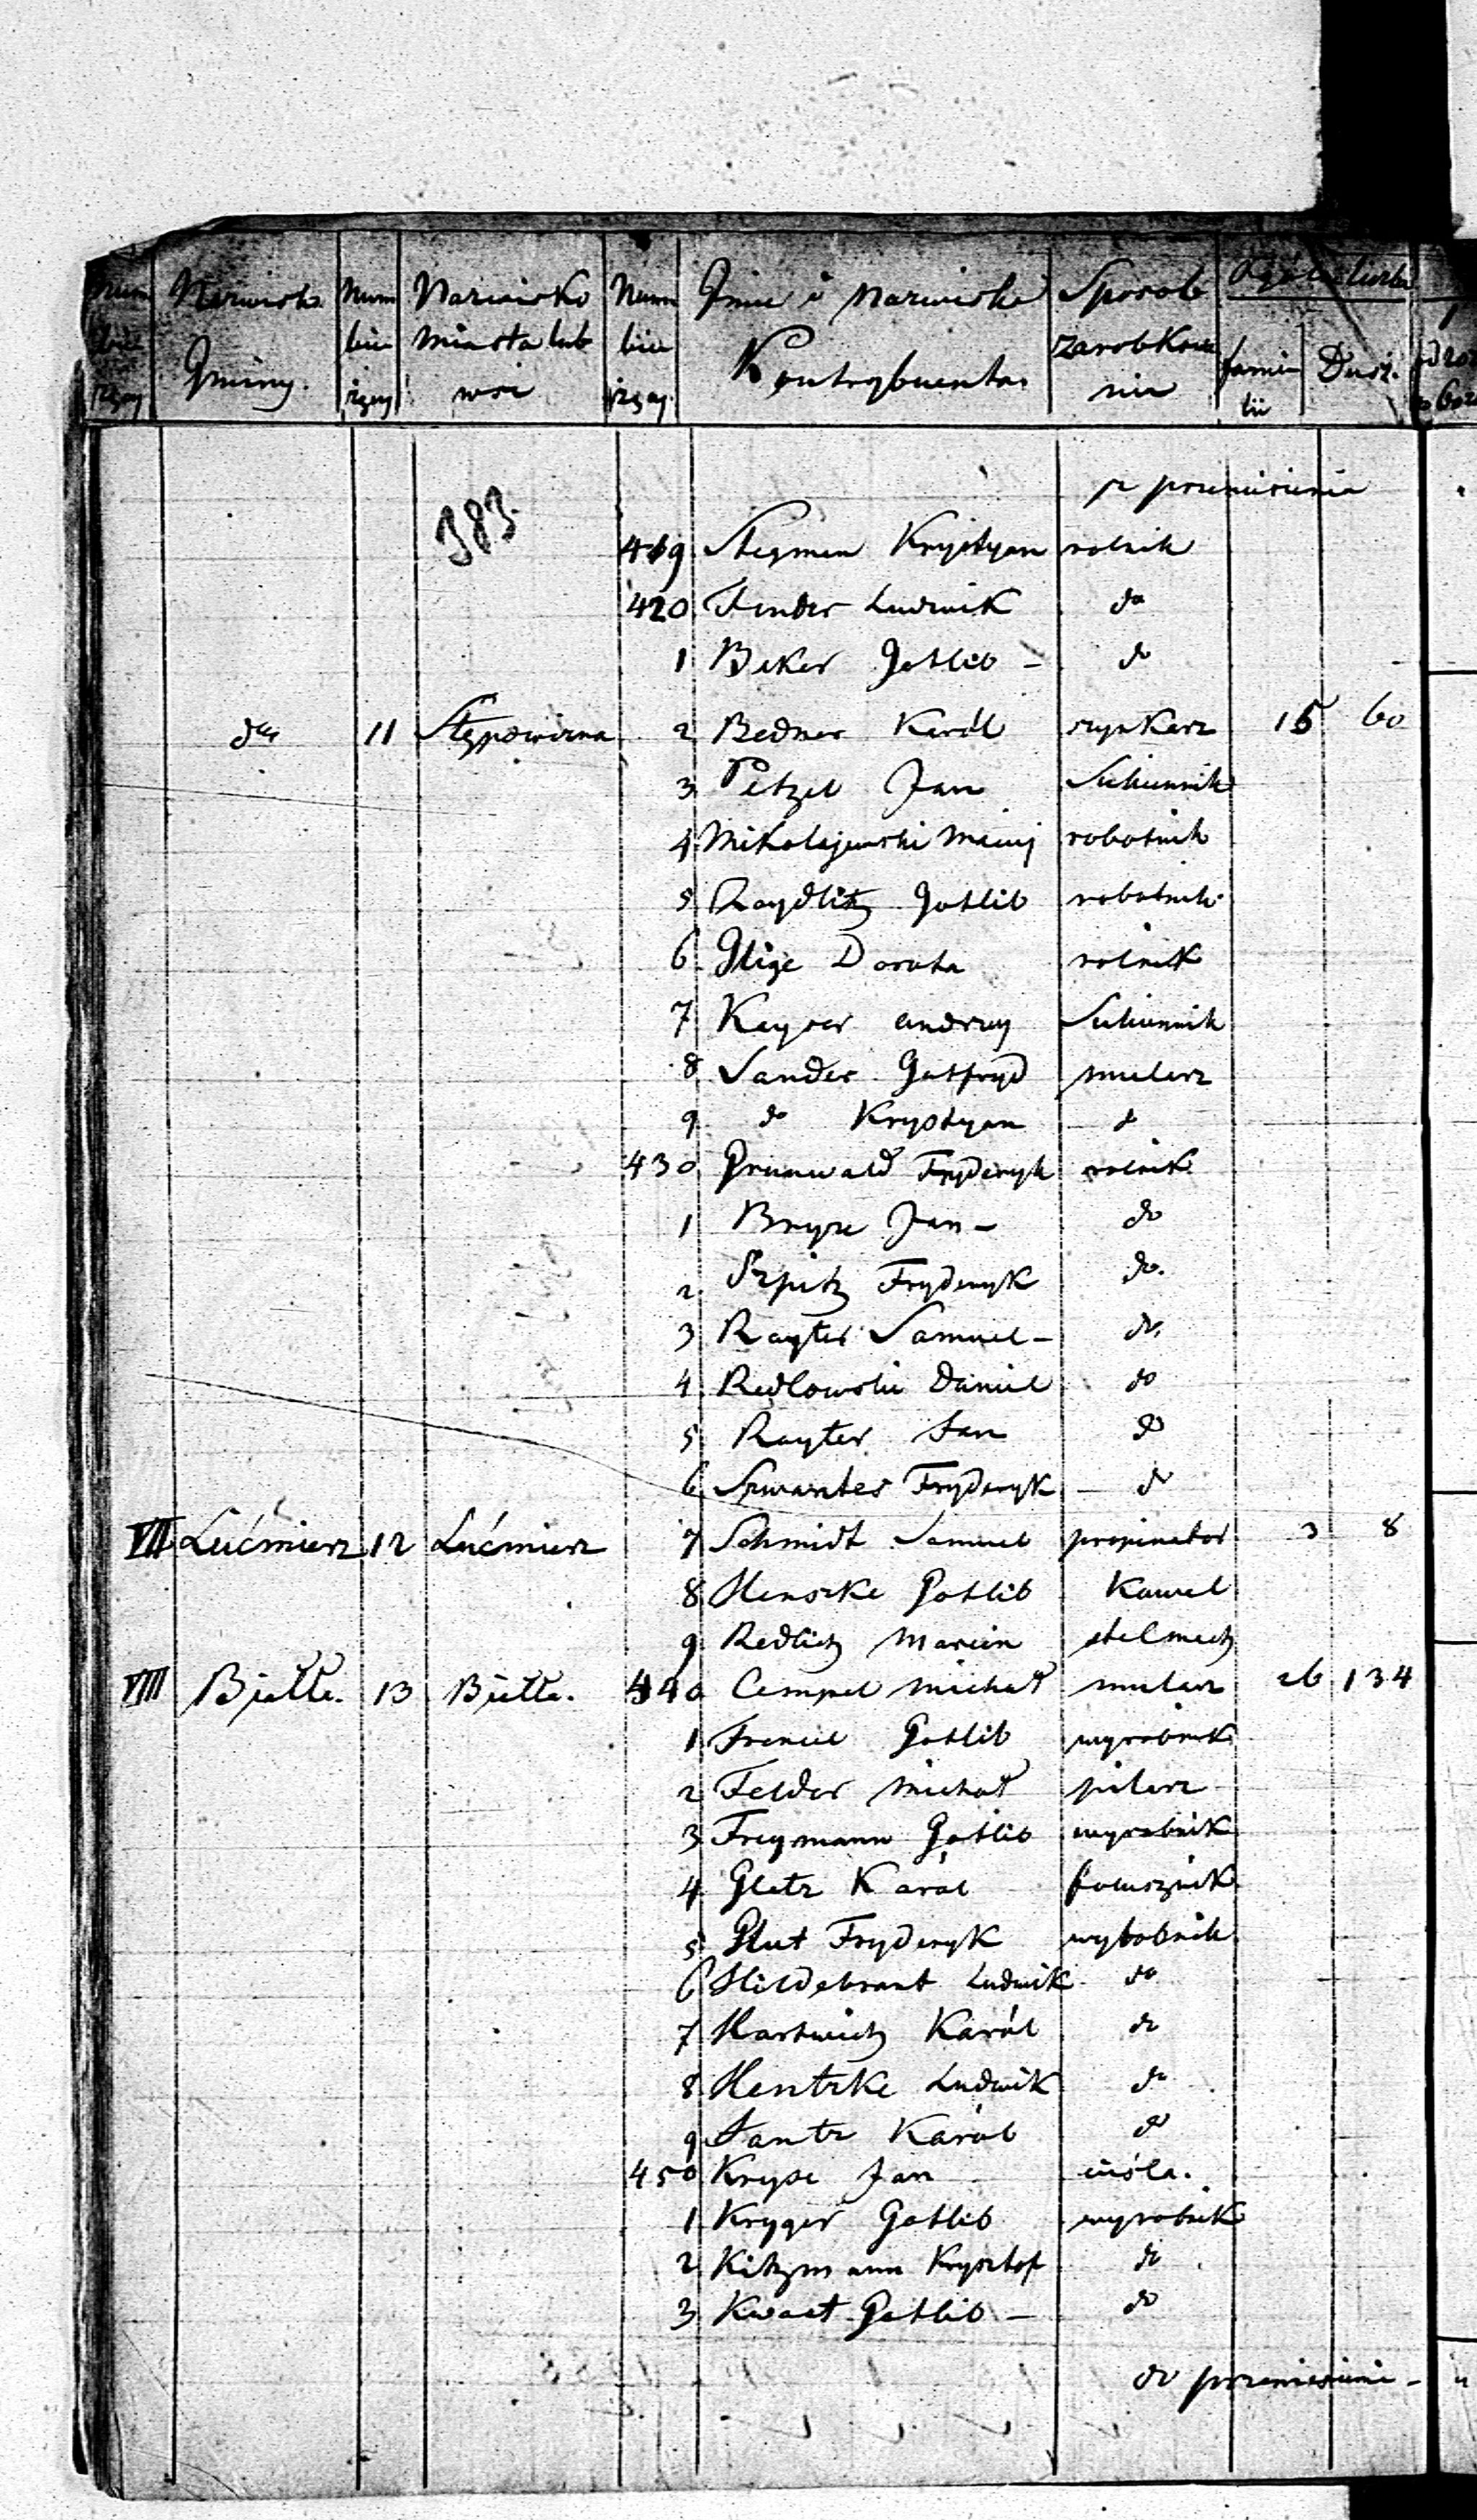 Num Nazwisko Num Nazwisko Num Imie i Nazwisko Sposob Ogólna liczba
bieżący Gminy. bieżący miasta lub wsi bieżący Kontrybuenta zarobkowania familii Dusz.
z przeniesienia
383
419 Stegman Krystyan rolnik
420 Fender Ludwik do
1 Beker Gotlib - do
do 11 Stępowizna 2 Bedner Karól szynkarz 15 60
3 Petzel Jan Sukiennik
4 Mikołajewski Maciej robotnik
5 Raydlitz Gotlib robotnik
6 Glige Dorota rolnik
7 Kayser Andrzey Sukiennik
8 Sander Gotfryd mularz
9 do Krystyan do
430 Grunwald Fryderyk rolnik
1 Bryze Jan - do
2 Szpitz Fryderyk do.
3 Rayter Samuel - do.
4 Redlowski Daniel do
5 Rayter Jan do
6 Szwantes Fryderyk do
VII Lućmierz 12 Lućmierz 7 Schmidt Samuel propinator 3 8
8 Henszke Gotlib Kowal
9 Redlich Marcin stelmach
VIII Biała. 13 Biała. 440 Cempel Michał mularz 26 134
1 Frenciel Gotlib wyrobnik
2 Felder Michał pilarz
3 Freymann Gotlib wyrobnik
4 Gletz Karol folusznik
5 Glut Fryderyk wyrobnik
6 Hildebrant Ludwik do
7 Hartwich Karól do
8 Hentzke Ludwik do
9 Jantz Karol do
450 Kryze Jan cieśla.
1 Kryger Gotlib wyrobnik
2 Kitzmann Krysztof do
3 Kwast Gotlib - do
do przeniesienia -